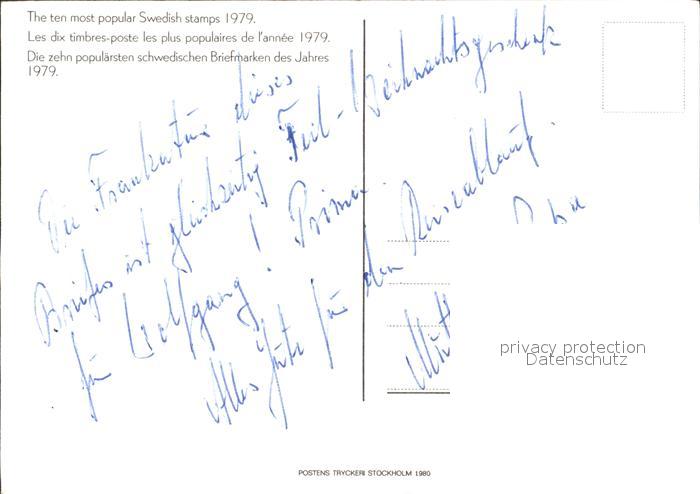 The ten most popular Swedish stamps 1979.
Les dix timbres-poste les plus populaires de l'année 1979.
Die zehn populärsten schwedischen Briefmarken des Jahres
1979.
Die Frankatur dieses
Briefes ist gleichzeitig Teil-Weihnachtsgeschenk
für Wolfgang! Prima
Alles Gute für den Reiseablauf.
privacy protection
Datenschutz
POSTENS TRYCKERI STOCKHOLM 1980